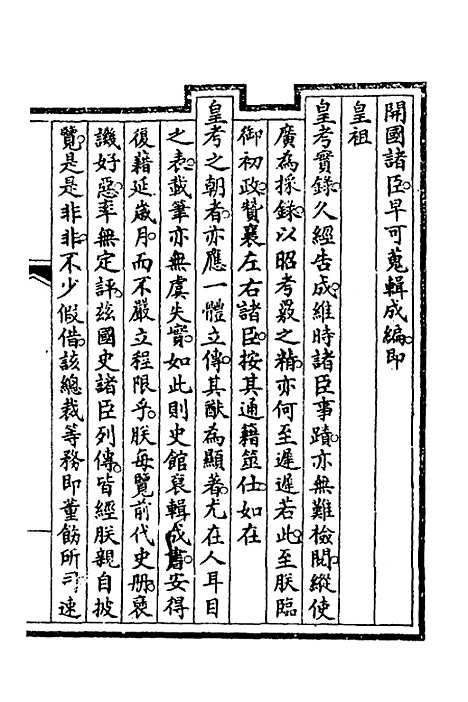 開國諸臣早可蒐輯成編即
皇祖
皇考實錄久經告成維時諸臣事蹟亦無難檢閱縱使
廣為採錄以昭考覈之精亦何至遲遲若此至朕臨
御初政贊襄左右諸臣按其通籍筮仕如在
皇考之朝者亦應一體立傳其猷為顯著尤在人耳目
之表載筆亦無虞失實如此則史館裒輯成書安得
復藉延歲月而不嚴立程限乎朕每覽前代史册褒
譏好惡率無定評茲國史諸臣列傳皆經朕親自披
覽是是非非不少假借該總裁等務即董飭所司速